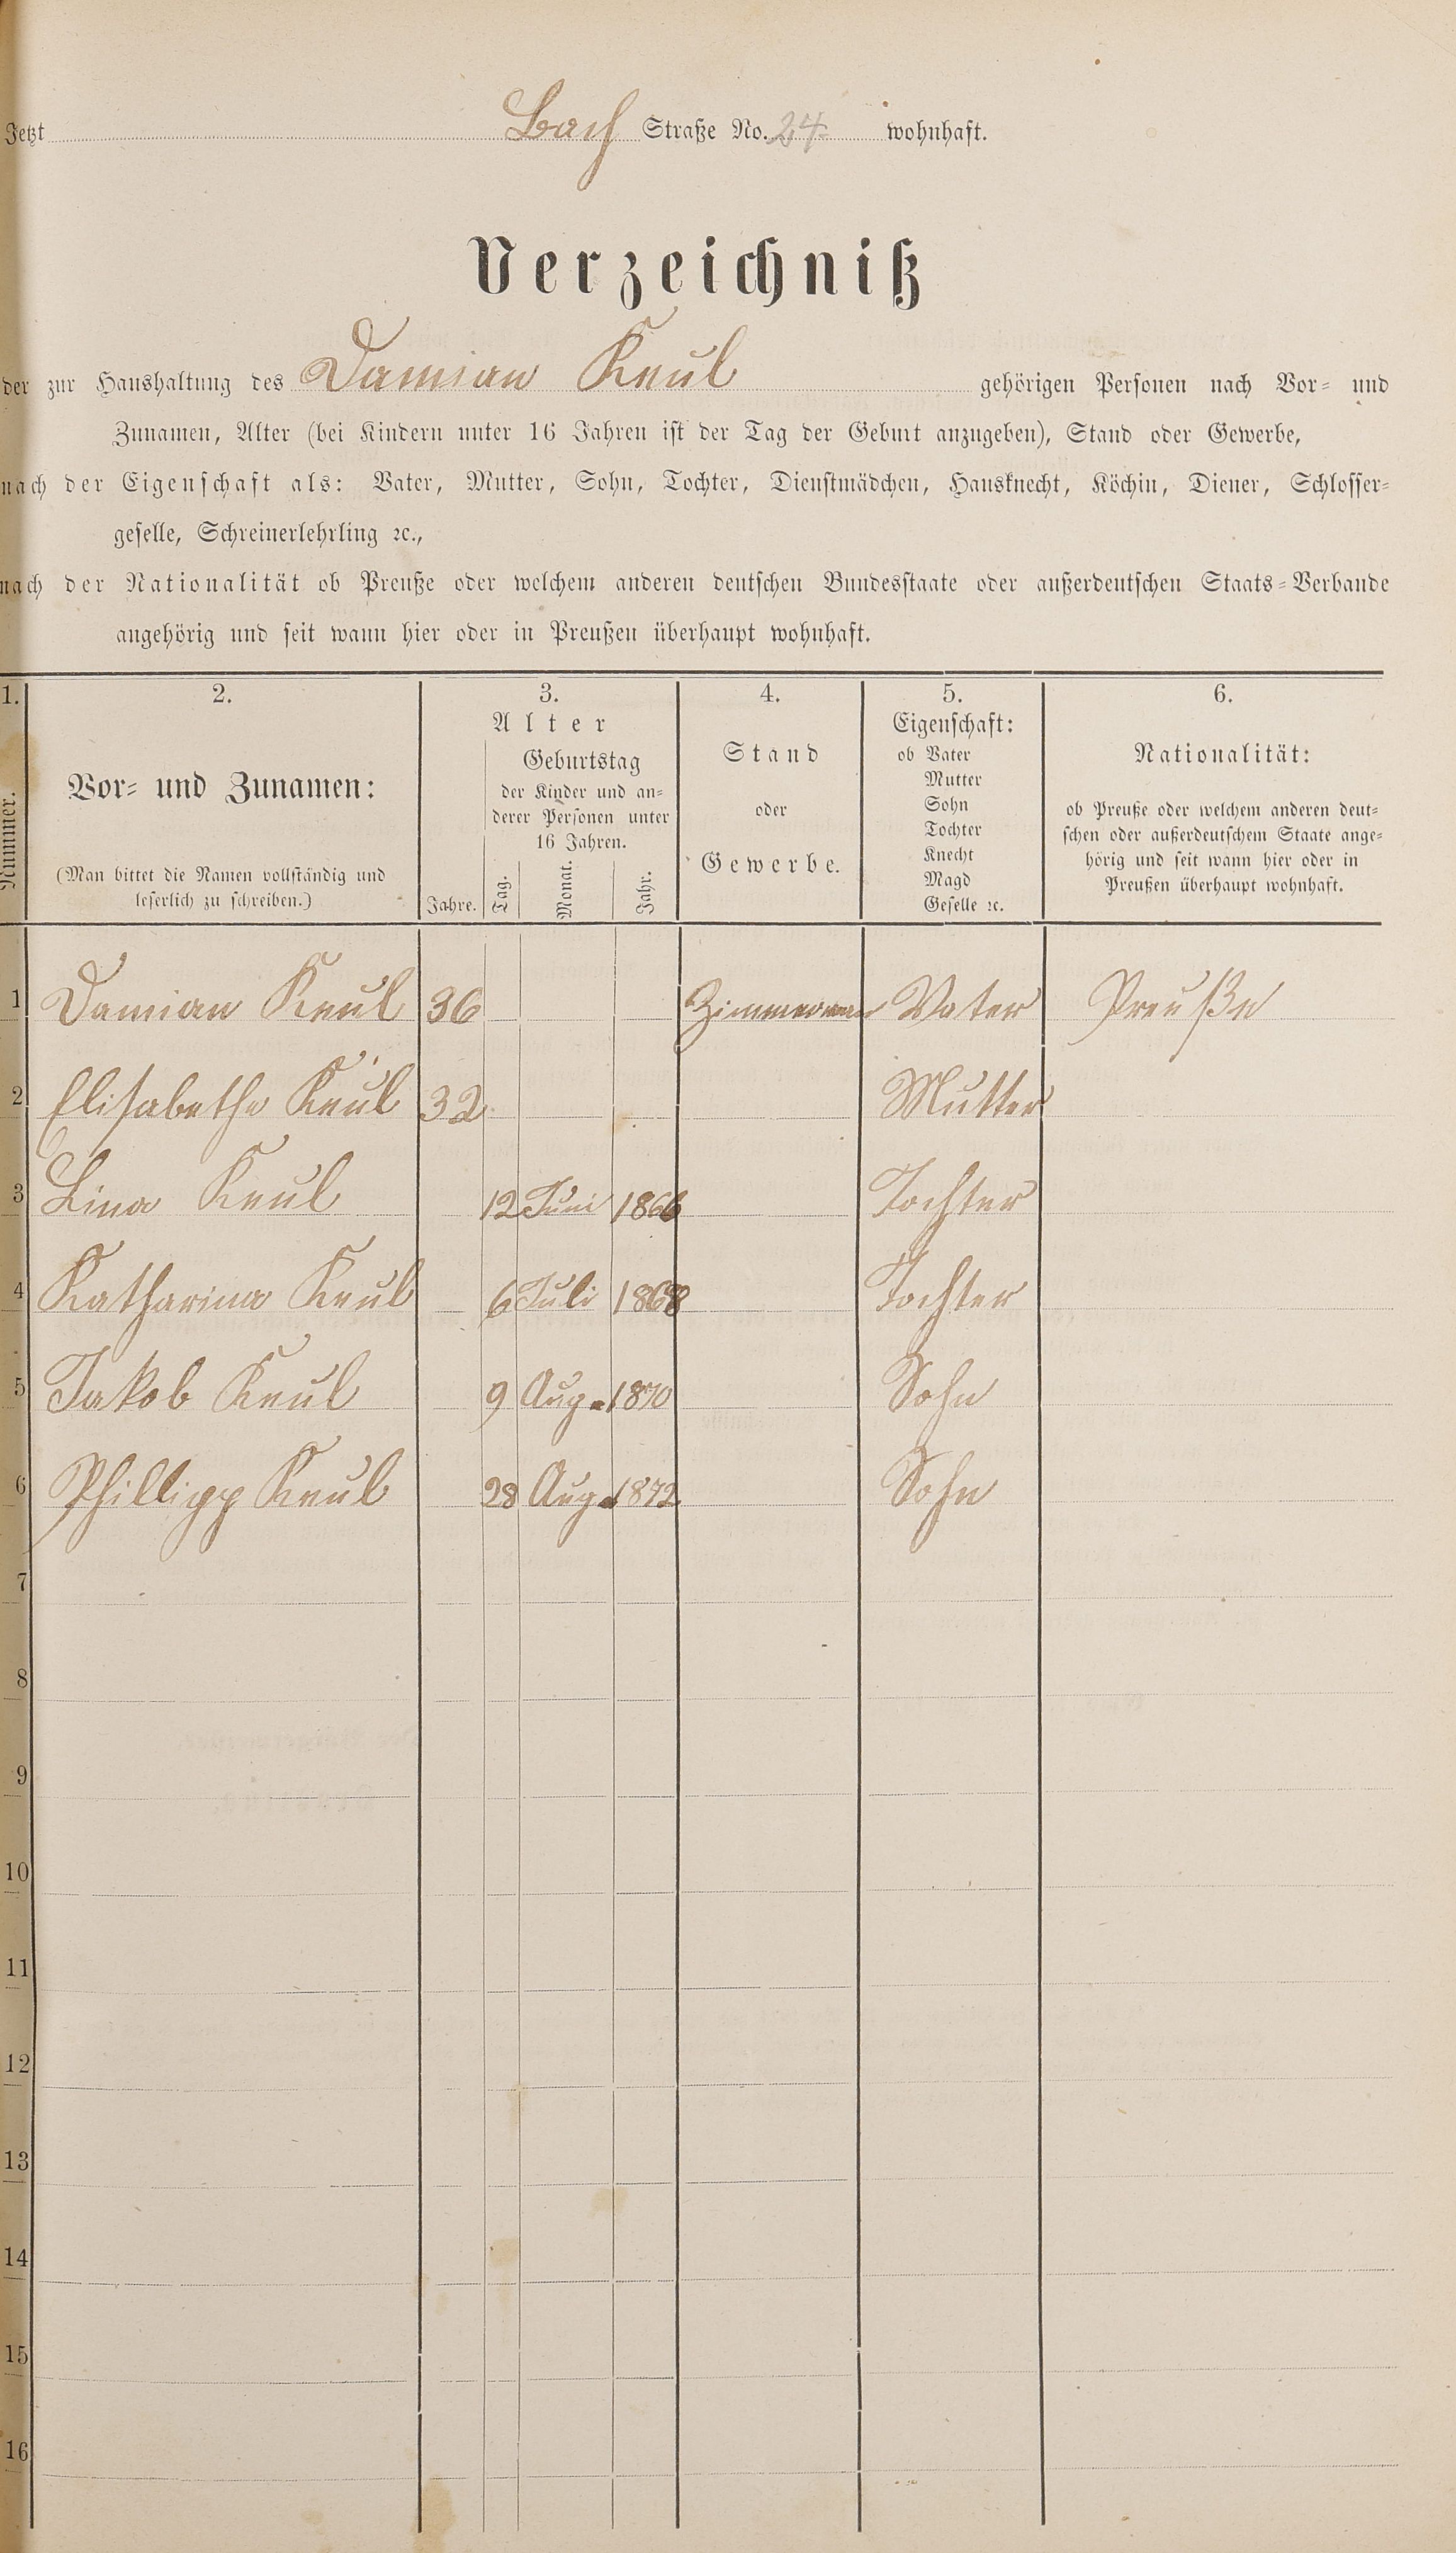 Jetzt Bach Straße No. 24 wohnhaft.
Verzeichniß
der zur Haushaltung des Damian Keul gehörigen Personen nach Vor- und
Zunamen, Alter (bei Kindern unter 16 Jahren ist der Tag der Geburt anzugeben), Stand oder Gewerbe,
nach der Eigenschaft als: Vater, Mutter, Sohn, Tochter, Dienstmädchen, Hausknecht, Köchin, Diener, Schlosser-
geselle, Schreinerlehrling ꝛc.,
nach der Nationalität ob Preuße oder welchem anderen deutschen Bundesstaate oder außerdeutschen Staats-Verbande
angehörig und seit wann hier oder in Preußen überhaupt wohnhaft.
1. 2. 3. 4. 5. 6.
Nummer.
Vor- und Zunamen:
(Man bittet die Namen vollständig und
leserlich zu schreiben.)
Alter
Jahre.
Geburtstag
der Kinder und an-
derer Personen unter
16 Jahren.
Tag. Monat. Jahr.
Stand
oder
Gewerbe.
Eigenschaft:
ob Vater
Mutter
Sohn
Tochter
Knecht
Magd
Geselle ꝛc.
Nationalität:
ob Preuße oder welchem anderen deut-
schen oder außerdeutschem Staate ange-
hörig und seit wann hier oder in
Preußen überhaupt wohnhaft.
1 Damian Keul 36 Zimmerman Vater Preuße
2 Elisabethe Keul 32 Mutter
3 Lina Keul 12 Juni 1866 Tochter
4 Katharina Keul 6 Juli 1868 Tochter
5 Jakob Keul 9 Aug. 1870 Sohn
6 Phillipp Keul 28 Aug. 1872 Sohn
7
8
9
10
11
12
13
14
15
16